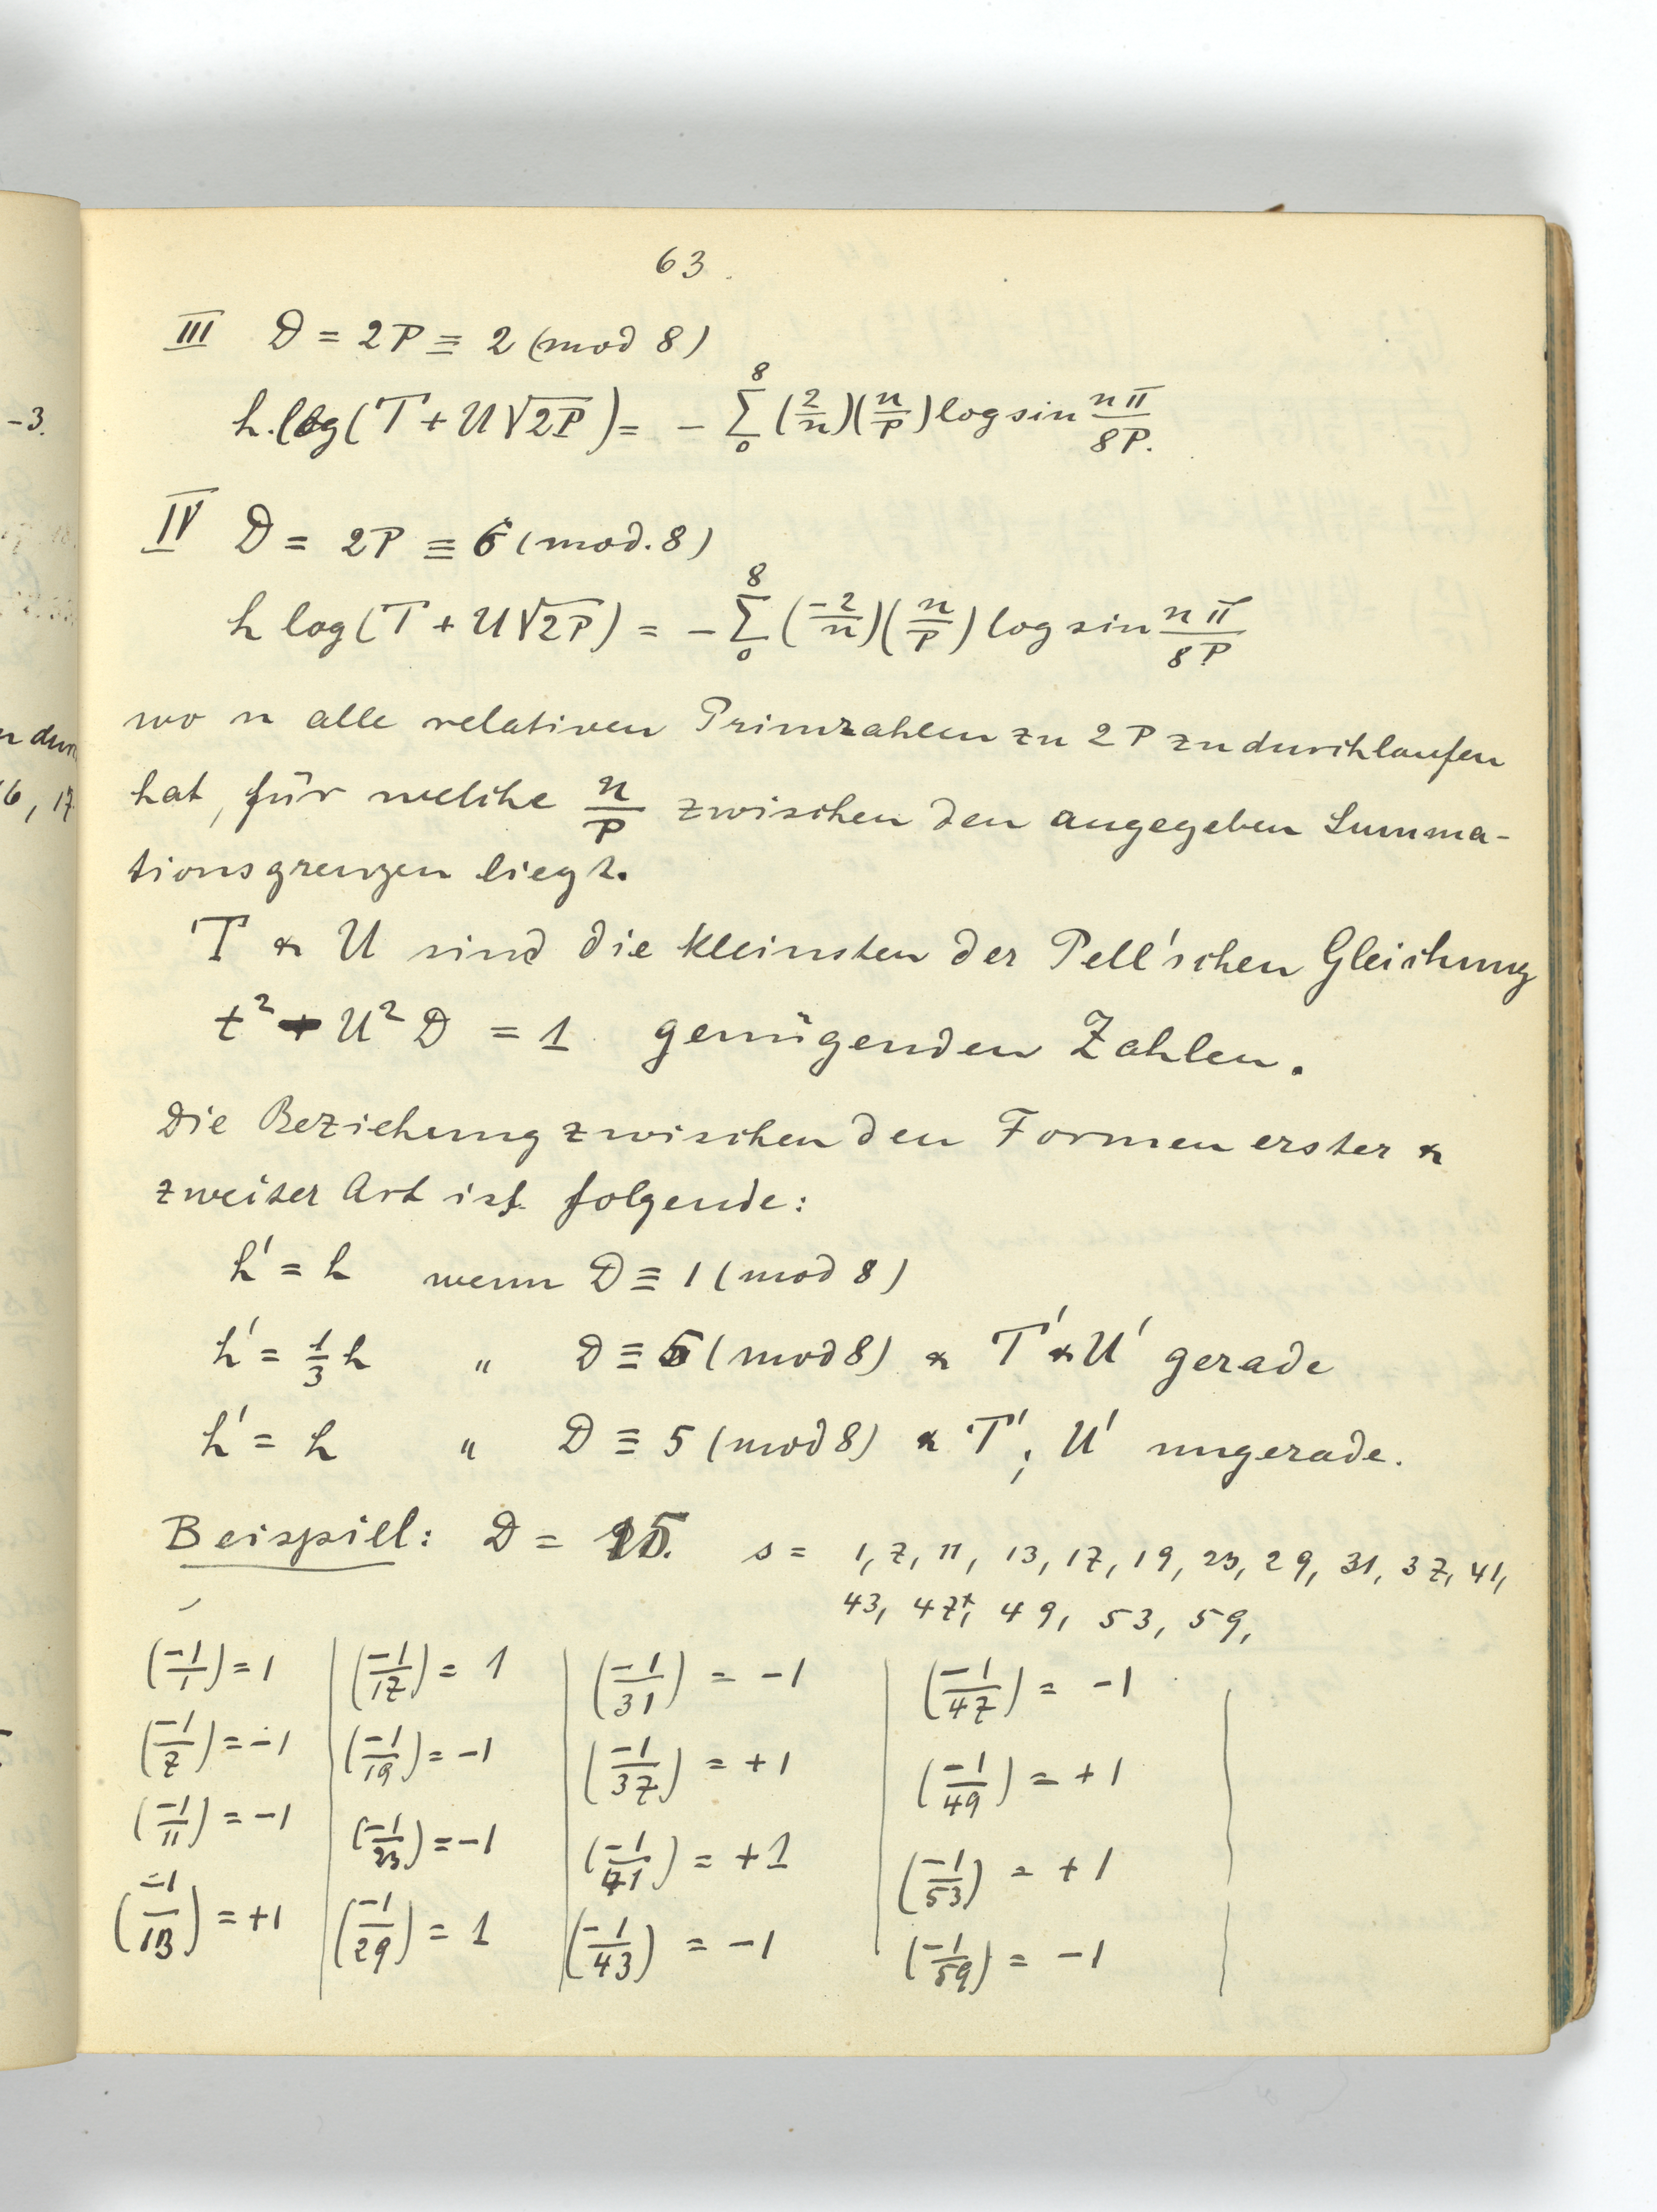 63.
III D = 2P ≡ 2 (mod 8)
h.log(T + U√2P) = - 8∑0 (2/n)(n/P) log sin nπ/8P.
IV D = 2P ≡ 6 (mod. 8)
h log(T + U√2P) = - 8∑0 (-2/n)(n/P) log sin nπ/8P
wo n alle relativen Primzahlen zu 2P zu durchlaufen
hat, für welche n/P zwischen den angegeben Summa-
tionsgrenzen liegt.
T & U sind die kleinsten der Pell'schen Gleichung
t² - U² D = 1 genügenden Zahlen.
Die Beziehung zwischen den Formen erster &
zweiter Art ist folgende:
h' = h wenn D ≡ 1 (mod 8)
h' = 1/3 h " D ≡ 5 (mod 8) & T' & U' gerade
h' = h " D ≡ 5 (mod 8) & T', U' ungerade.
Beispiel: D = 15. s = 1, 7, 11, 13, 17, 19, 23, 29, 31, 37, 41,
43, 47, 49, 53, 59,
(-1/1) = 1 | (-1/17) = 1 | (-1/31) = -1 | (-1/47) = -1
(-1/7) = -1 | (-1/19) = -1 | (-1/37) = +1 | (-1/49) = +1
(-1/11) = -1 | (-1/23) = -1 | (-1/41) = +1 | (-1/53) = +1
(-1/13) = +1 | (-1/29) = 1 | (-1/43) = -1 | (-1/59) = -1
-3.
16, 17